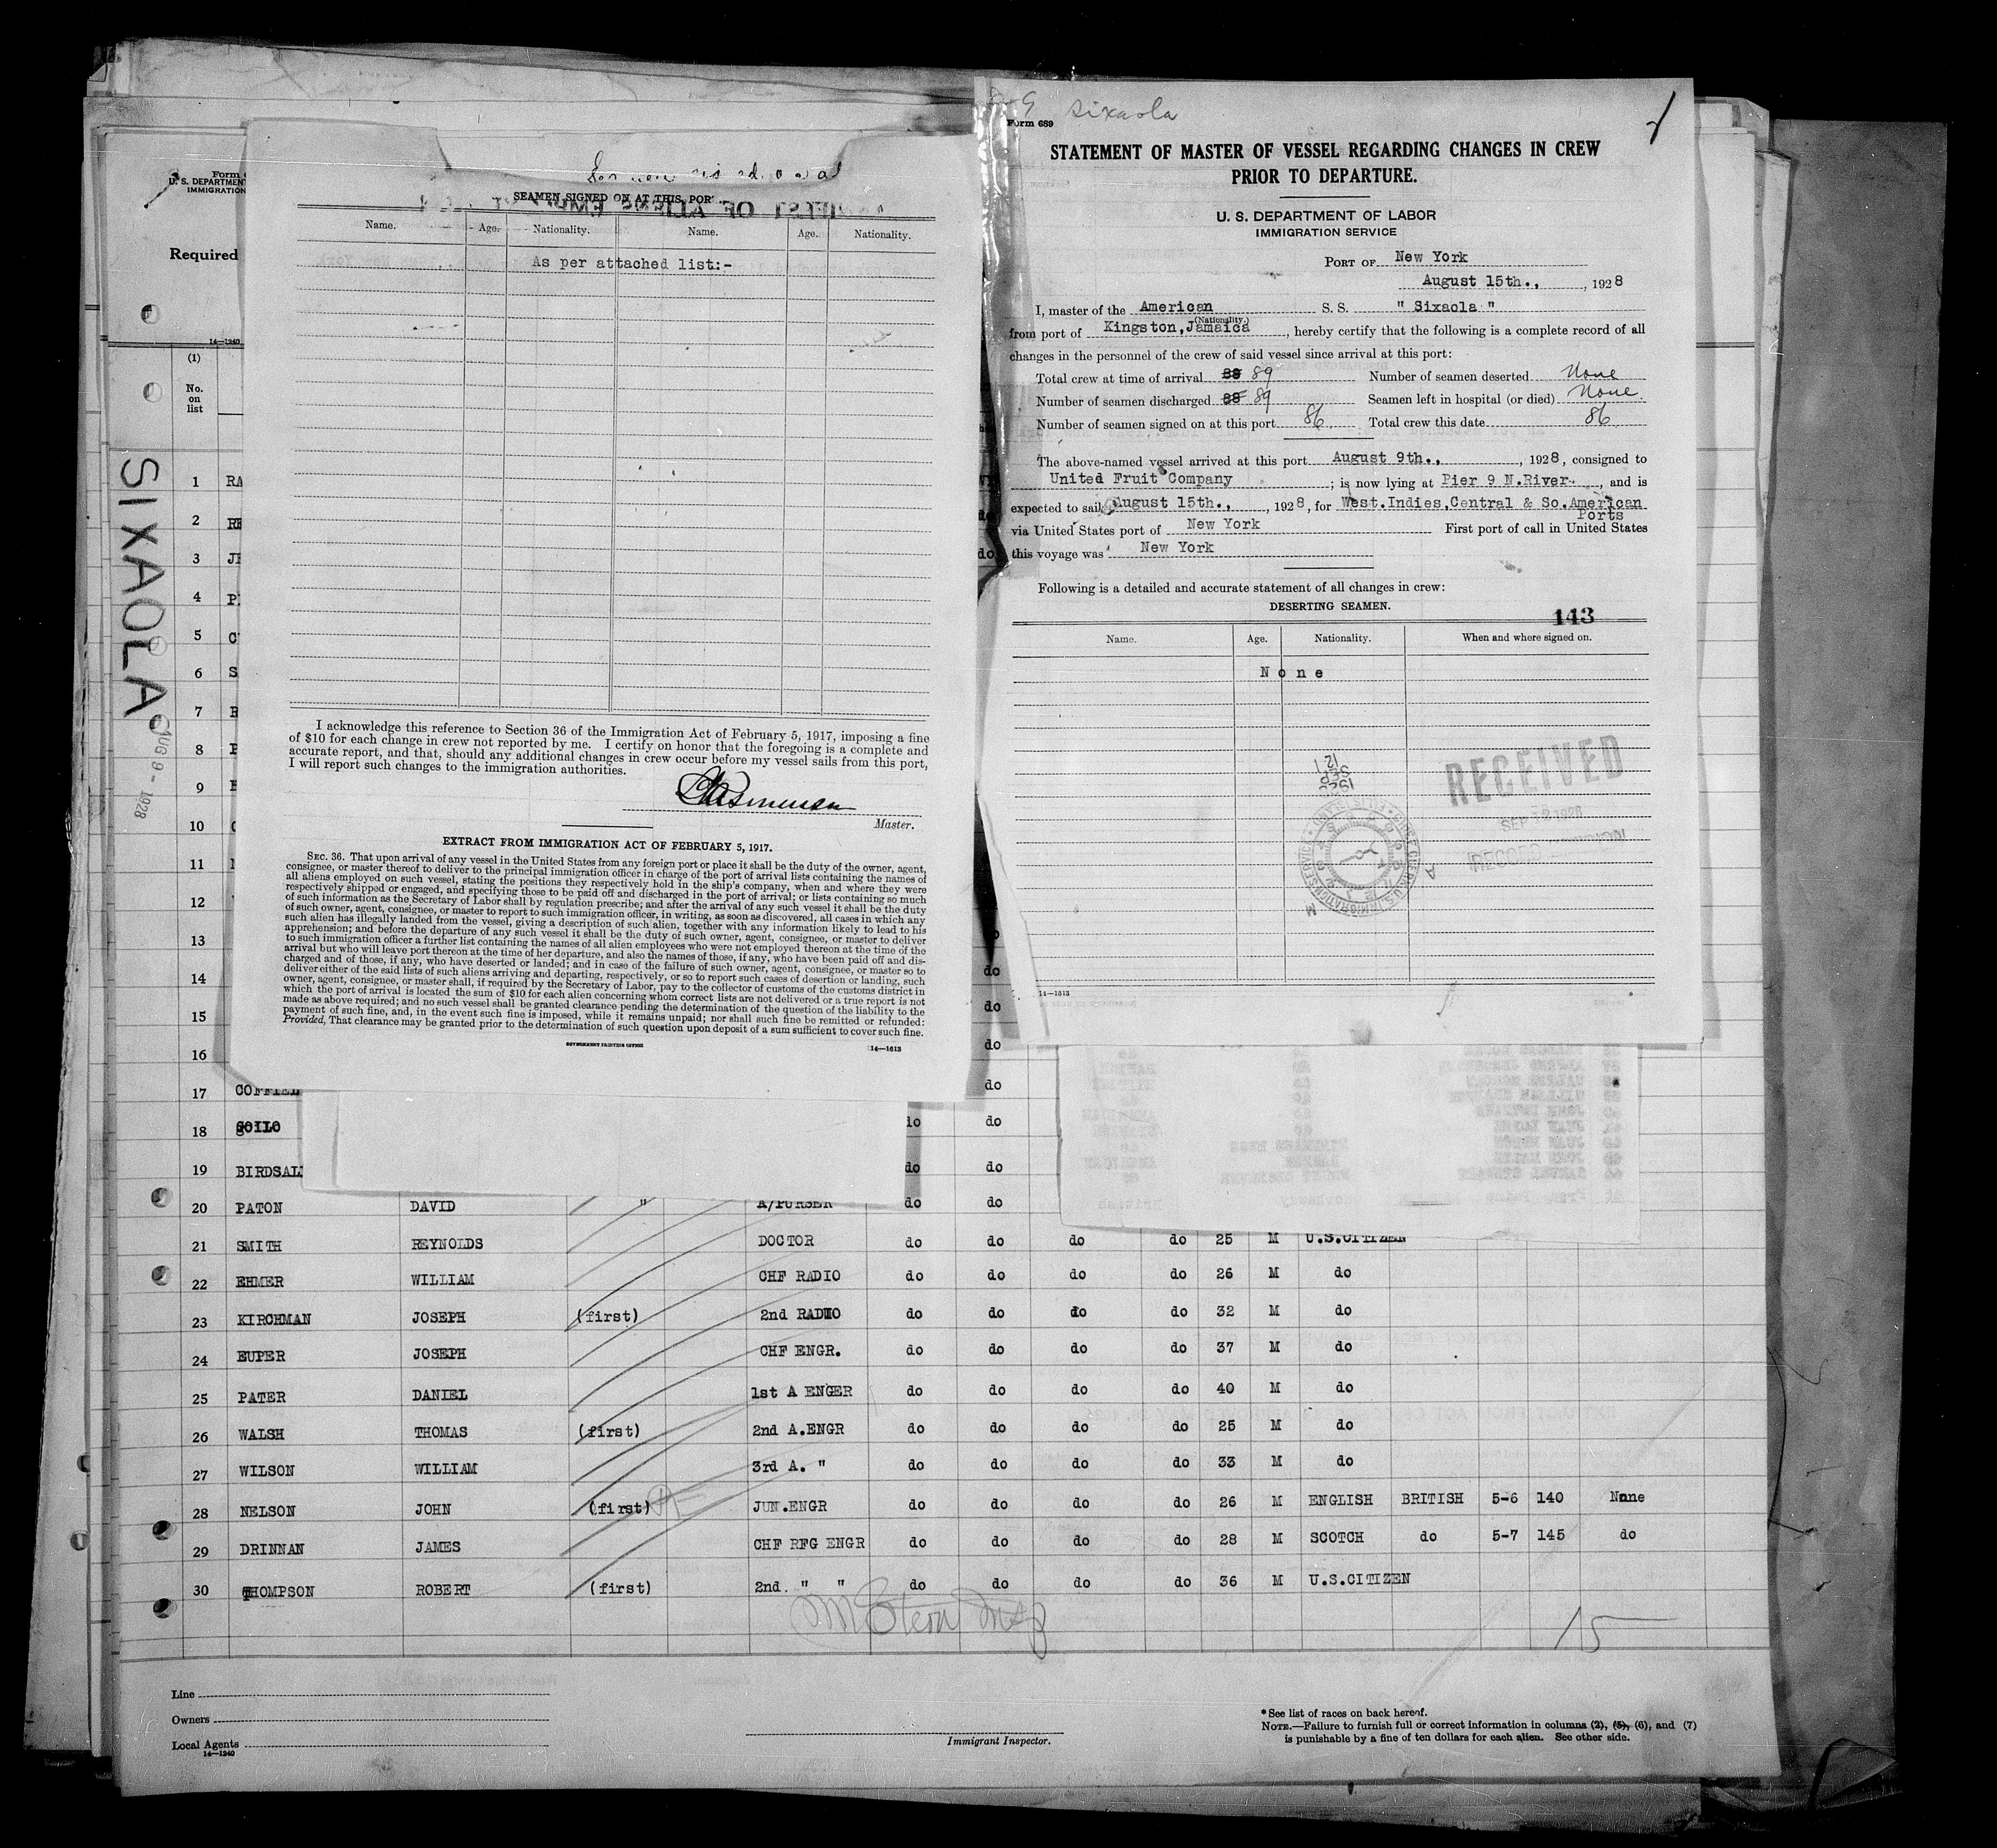 Form
U. S. DEPARTMENT
IMMIGRATION
Required
14—1240
(1)
No.
on
list
SIXAOLA
AUG 9 - 1928
SEAMEN SIGNED ON AT THIS POR
Name. Age. Nationality. Name. Age. Nationality.
As per attached list:-
I acknowledge this reference to Section 36 of the Immigration Act of February 5, 1917, imposing a fine
of $10 for each change in crew not reported by me. I certify on honor that the foregoing is a complete and
accurate report, and that, should any additional changes in crew occur before my vessel sails from this port,
I will report such changes to the immigration authorities.
Master.
EXTRACT FROM IMMIGRATION ACT OF FEBRUARY 5, 1917.
SEC. 36. That upon arrival of any vessel in the United States from any foreign port or place it shall be the duty of the owner, agent,
consignee, or master thereof to deliver to the principal immigration officer in charge of the port of arrival lists containing the names of
all aliens employed on such vessel, stating the positions they respectively hold in the ship's company, when and where they were
respectively shipped or engaged, and specifying those to be paid off and discharged in the port of arrival; or lists containing so much
of such information as the Secretary of Labor shall by regulation prescribe; and after the arrival of any such vessel it shall be the duty
of such owner, agent, consignee, or master to report to such immigration officer, in writing, as soon as discovered, all cases in which any
such alien has illegally landed from the vessel, giving a description of such alien, together with any information likely to lead to his
apprehension; and before the departure of any such vessel it shall be the duty of such owner, agent, consignee, or master to deliver
to such immigration officer a further list containing the names of all alien employees who were not employed thereon at the time of the
arrival but who will leave port thereon at the time of her departure, and also the names of those, if any, who have been paid off and dis-
charged and of those, if any, who have deserted or landed; and in case of the failure of such owner, agent, consignee, or master so to
deliver either of the said lists of such aliens arriving and departing, respectively, or so to report such cases of desertion or landing, such
owner, agent, consignee, or master shall, if required by the Secretary of Labor, pay to the collector of customs of the customs district in
which the port of arrival is located the sum of $10 for each alien concerning whom correct lists are not delivered or a true report is not
made as above required; and no such vessel shall be granted clearance pending the determination of the question of the liability to the
payment of such fine, and, in the event such fine is imposed, while it remains unpaid; nor shall such fine be remitted or refunded:
Provided, That clearance may be granted prior to the determination of such question upon deposit of a sum sufficient to cover such fine.
GOVERNMENT PRINTING OFFICE 14—1613
Sixaola
Form 689
STATEMENT OF MASTER OF VESSEL REGARDING CHANGES IN CREW
PRIOR TO DEPARTURE.
U. S. DEPARTMENT OF LABOR
IMMIGRATION SERVICE
PORT OF New York
August 15th., , 1928
I, master of the American S. S. " Sixaola "
(Nationality.)
from port of Kingston,Jamaica, hereby certify that the following is a complete record of all
changes in the personnel of the crew of said vessel since arrival at this port:
Total crew at time of arrival 88 89 Number of seamen deserted None
Number of seamen discharged 88 89 Seamen left in hospital (or died) None.
Number of seamen signed on at this port 86 Total crew this date 86
The above-named vessel arrived at this port August 9th., , 1928, consigned to
United Fruit Company ; is now lying at Pier 9 N.River. , and is
expected to sail August 15th., , 1928, for West.Indies,Central & So.American
Ports
via United States port of New York First port of call in United States
this voyage was New York
Following is a detailed and accurate statement of all changes in crew:
DESERTING SEAMEN. 143
Name. Age. Nationality. When and where signed on.
None
1928 SEP 12
RECEIVED
SEP 12 1928
RECORD DIVISION
14—1613
1 RA
2
3
4
5
6 S
7
8
9
10
11
12
13
14 do
15 do
16 do
17 COFFIEL do
18 do
19 BIRDSAL do do
20 PATON DAVID " A/PURSER do do
21 SMITH REYNOLDS DOCTOR do do do do 25 M U.S.CITIZEN
22 EHMER WILLIAM CHF RADIO do do do do 26 M do
23 KIRCHMAN JOSEPH (first) 2nd RADIO do do do do 32 M do
24 EUPER JOSEPH CHF ENGR. do do do do 37 M do
25 PATER DANIEL 1st A ENGER do do do do 40 M do
26 WALSH THOMAS (first) 2nd A.ENGR do do do do 25 M do
27 WILSON WILLIAM 3rd A. " do do do do 33 M do
28 NELSON JOHN (first) JUN.ENGR do do do do 26 M ENGLISH BRITISH 5-6 140 None
29 DRINNAN JAMES CHF RFG ENGR do do do do 28 M SCOTCH do 5-7 145 do
30 THOMPSON ROBERT (first) 2nd. " " do do do do 36 M U.S.CITIZEN
15
Line
Owners
Local Agents
14—1240
Immigrant Inspector.
* See list of races on back hereof.
NOTE.—Failure to furnish full or correct information in columns (2), (5), (6), and (7)
is punishable by a fine of ten dollars for each alien. See other side.